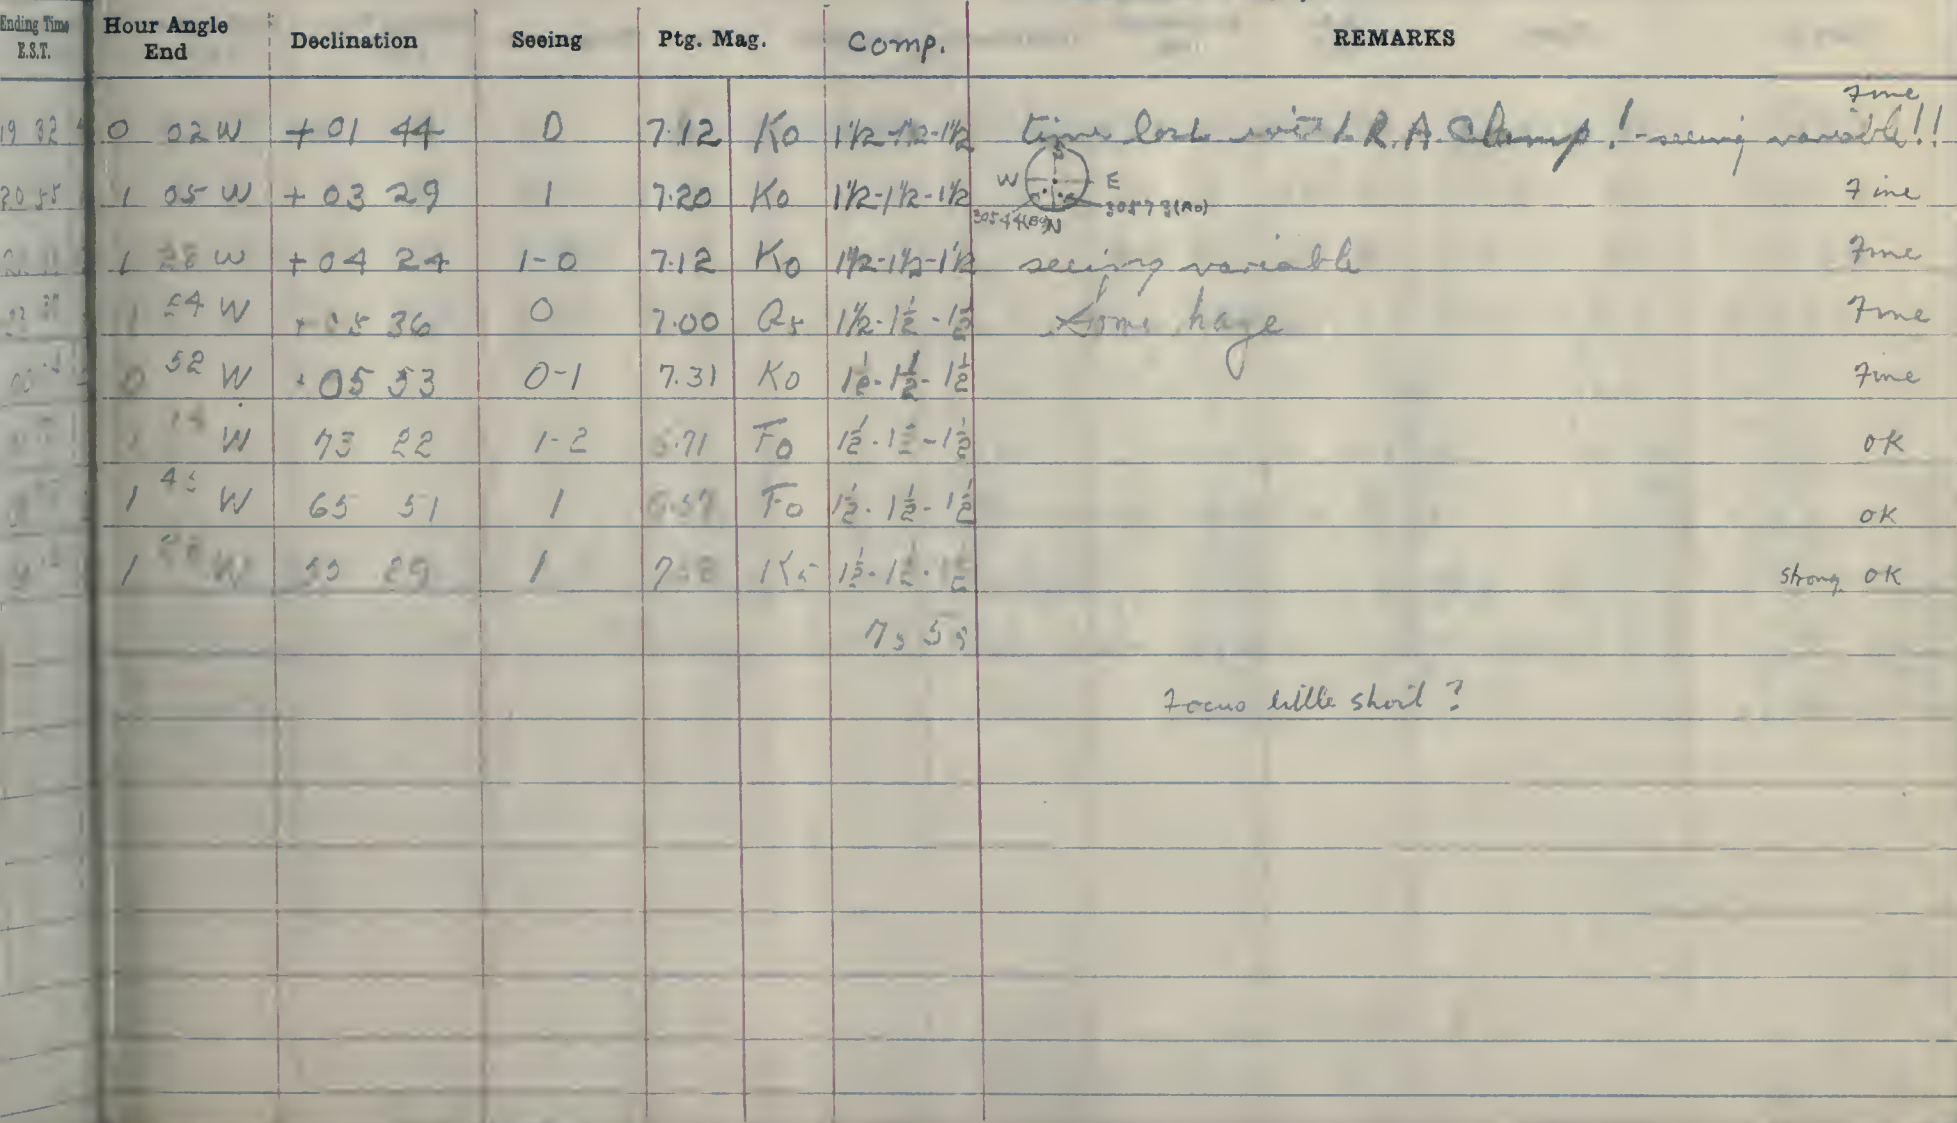 Ending Time E.S.T. Hour Angle End Declination Seeing Ptg. Mag. Comp. REMARKS
Fine
19 32 0 02 W +01 44 0 7.12 Ko 1½-1½-1½ time lost with R.A. Clamp! - seeing variable!!
S
20 55 1 05 W +03 29 1 7.20 Ko 1½-1½-1½ W E Fine
30573 (A0)
30544 N
1 28 W +04 24 1-0 7.12 Ko 1½-1½-1½ seeing variable Fine
54 W +05 36 0 7.00 1½-1½-1½ Some haze Fine
0 52 W +05 53 0-1 7.31 Ko 1½-1½-1½ Fine
W 73 22 1-2 71 Fo 1½-1½-1½ OK
1 45 W 65 51 1 Fo 1½-1½-1½ OK
1 W 29 1 K5 1½-1½-1½ strong OK
Focus little short?